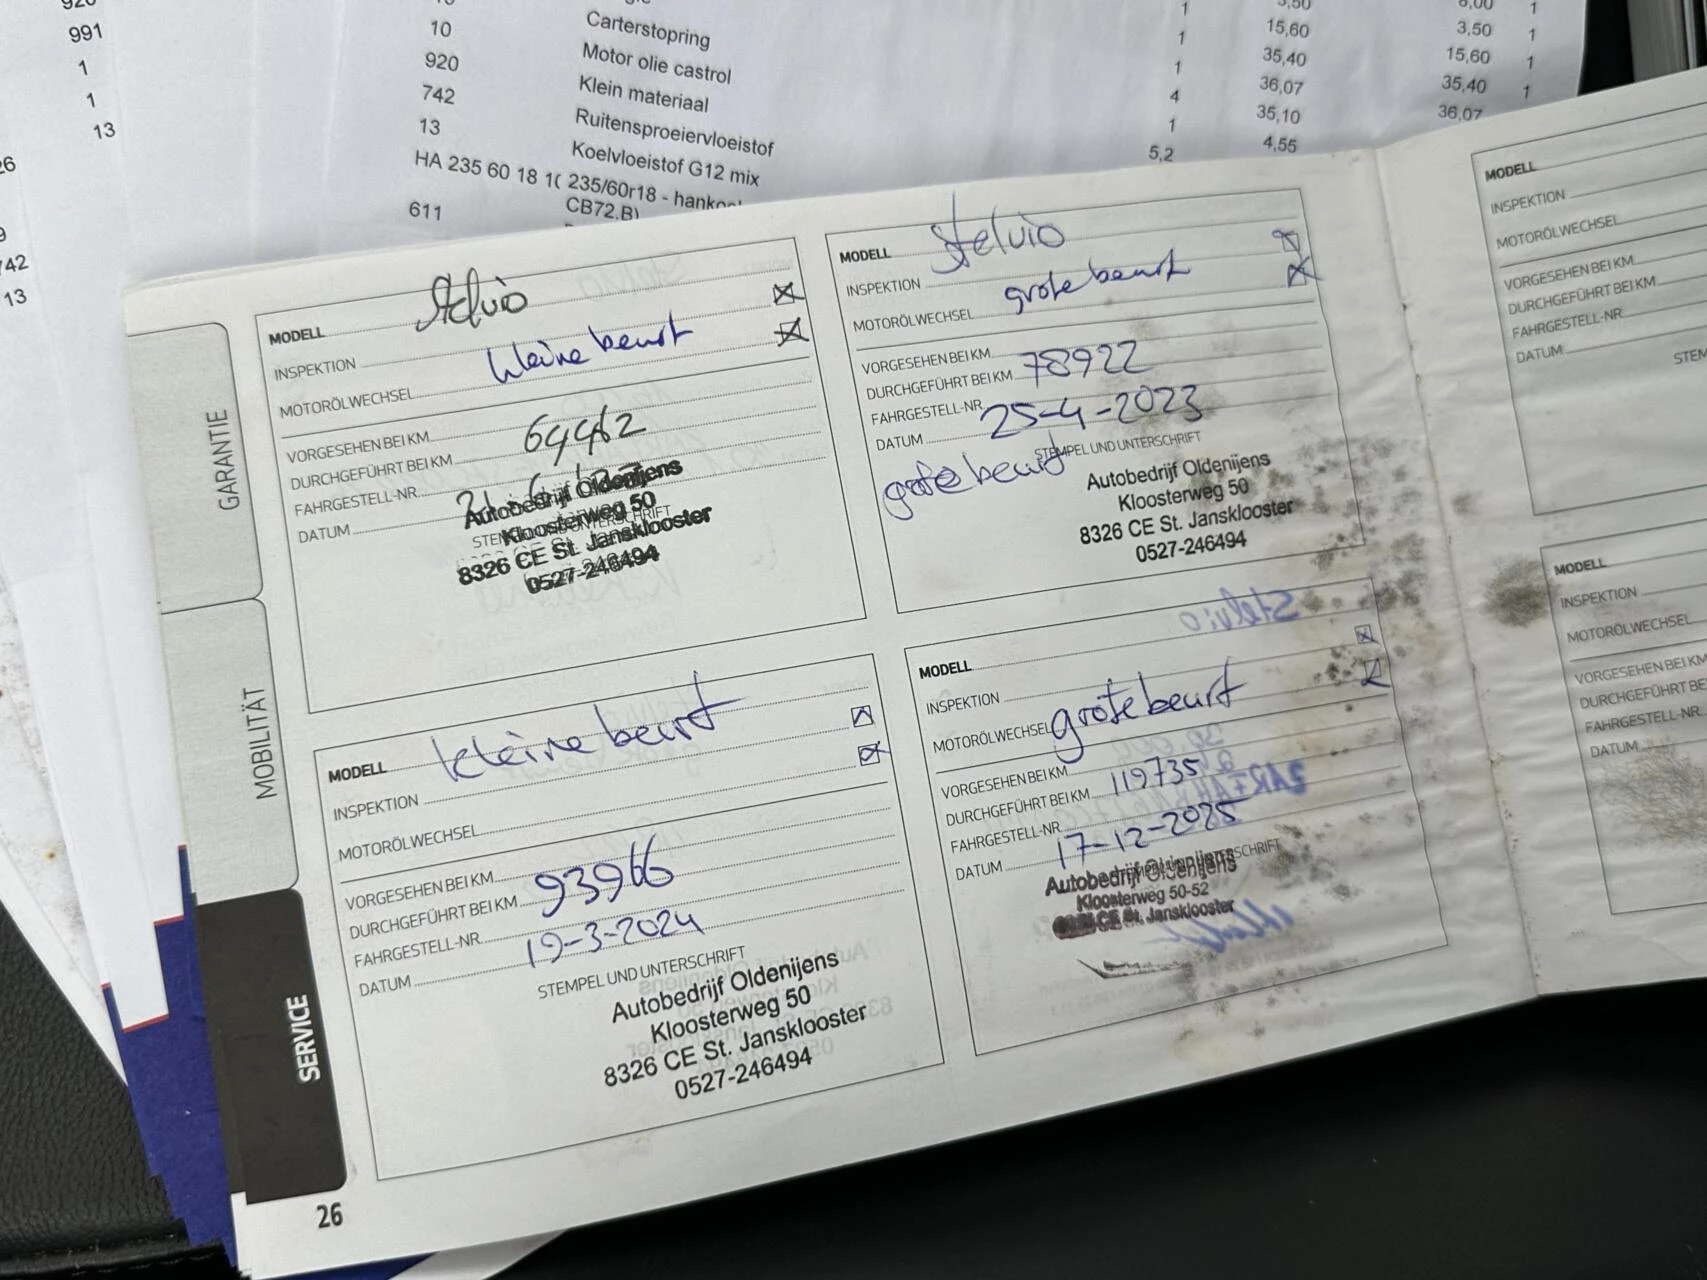 991
1
1
13
742
13
10
920
742
13
HA 235 60 18 10
611
Carterstopring
Motor olie castrol
Klein materiaal
Ruitensproeiervloeistof
Koelvloeistof G12 mix
235/60r18 - hankook
CB72.B)
1
1
1
4
1
5,2
3,50
15,60
35,40
36,07
35,10
4,55
6,00
3,50
15,60
35,40
36,07
1
1
1
1
GARANTIE
MOBILITÄT
SERVICE
MODELL Stelvio
INSPEKTION
MOTORÖLWECHSEL kleine beurt
VORGESEHEN BEI KM
DURCHGEFÜHRT BEI KM 64462
FAHRGESTELL-NR.
DATUM
Autobedrijf Oldenijens
Kloosterweg 50
8326 CE St. Jansklooster
0527-246494
MODELL Stelvio
INSPEKTION
MOTORÖLWECHSEL grote beurt
VORGESEHEN BEI KM
DURCHGEFÜHRT BEI KM 78922
FAHRGESTELL-NR.
DATUM 25-4-2023
STEMPEL UND UNTERSCHRIFT
grote beurt
Autobedrijf Oldenijens
Kloosterweg 50
8326 CE St. Jansklooster
0527-246494
MODELL kleine beurt
INSPEKTION
MOTORÖLWECHSEL
VORGESEHEN BEI KM
DURCHGEFÜHRT BEI KM 93966
FAHRGESTELL-NR.
DATUM 19-3-2024
STEMPEL UND UNTERSCHRIFT
Autobedrijf Oldenijens
Kloosterweg 50
8326 CE St. Jansklooster
0527-246494
MODELL
INSPEKTION
MOTORÖLWECHSEL grote beurt
VORGESEHEN BEI KM
DURCHGEFÜHRT BEI KM 119735
FAHRGESTELL-NR.
DATUM 17-12-2025
Autobedrijf Oldenijens
Kloosterweg 50-52
8326 CE St. Jansklooster
MODELL
INSPEKTION
MOTORÖLWECHSEL
VORGESEHEN BEI KM
DURCHGEFÜHRT BEI KM
FAHRGESTELL-NR.
DATUM
STEM
MODELL
INSPEKTION
MOTORÖLWECHSEL
VORGESEHEN BEI KM
DURCHGEFÜHRT BEI
FAHRGESTELL-NR.
DATUM
26